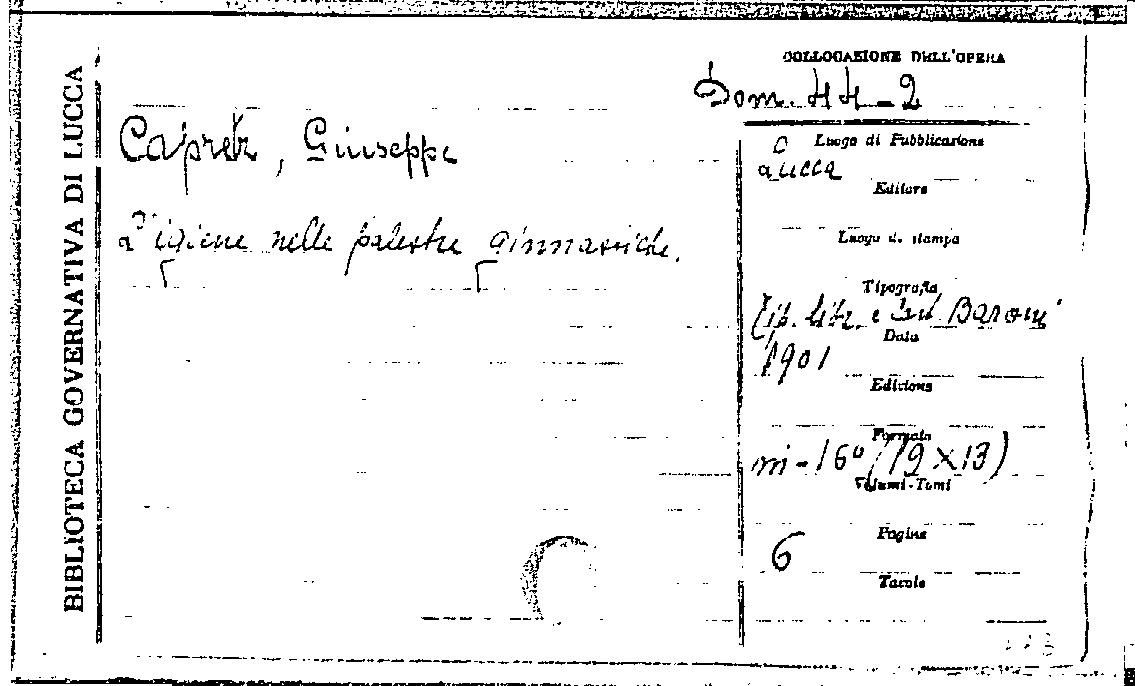 BIBLIOTECA GOVERNATIVA DI LUCCA
COLLOCAZIONE DELL'OPERA
Dom. 44-2
Capretz, Giuseppe
L'igiene nelle palestre ginnastiche.
Luogo di Pubblicazione
Lucca
Editore
Luogo di stampa
Tipografia
Tip. libr. e Baroni
Data
1901
Edizione
Formato
in-16° (19 X 13)
Volumi-Tomi
Pagine
6
Tavole